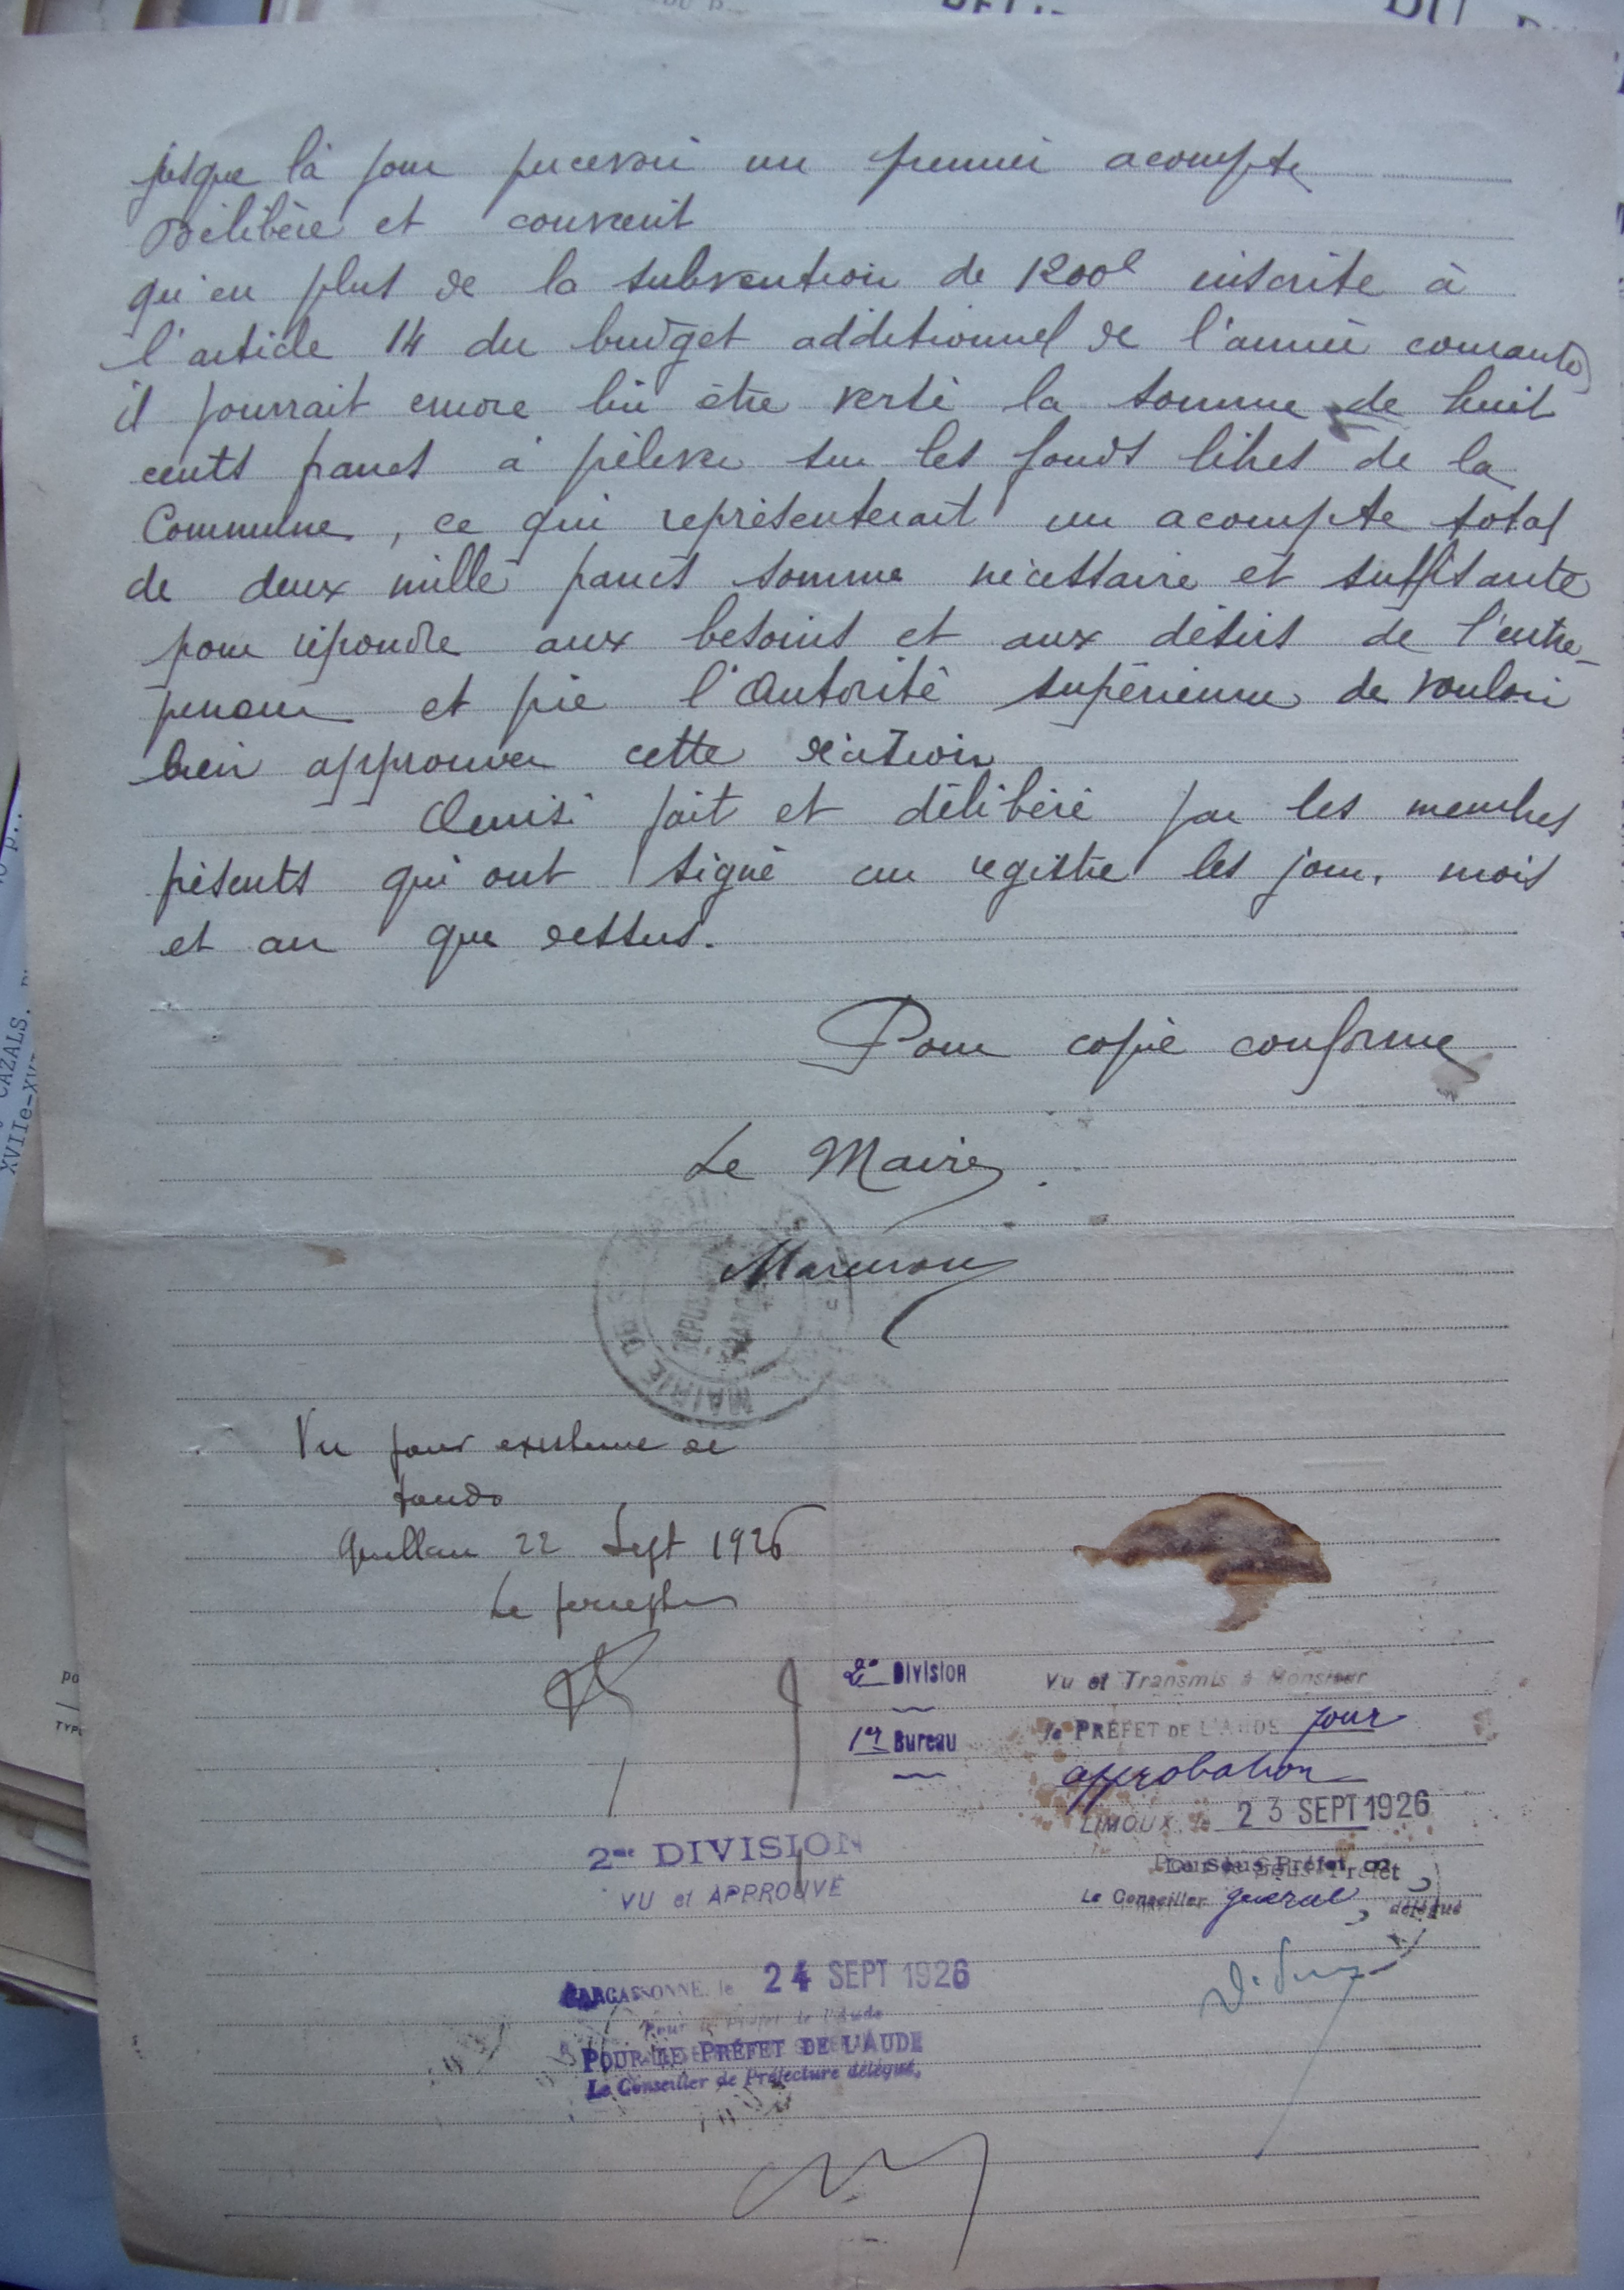 jusque là pour percevoir un premier acompte
Délibère et convient
qu'en plus de la subvention de 1200f inscrite à
l'article 14 du budget additionnel de l'année courante
il pourrait encore lui être versé la somme de huit
cents francs à prélever sur les fonds libres de la
Commune, ce qui représenterait un acompte total
de deux mille francs somme nécessaire et suffisante
pour répondre aux besoins et aux désirs de l'entre-
preneur et prie l'Autorité supérieure de vouloir
bien approuver cette
Ainsi fait et délibéré par les membres
présents qui ont signé au registre les jour, mois
et an que dessus.
Pour copie conforme
Le Maire
MAIRIE DE
RÉPUBLIQUE
FRANÇAISE
Vu pour existence de
fonds
Quillan 22 Sept 1926
Le percepteur
2e Division
1er Bureau
Vu et Transmis à Monsieur
le PRÉFET DE L'AUDE pour
approbation
LIMOUX, le 23 SEPT 1926
Le Sous-Préfet
Le Conseiller général, délégué
2me DIVISION
VU et APPROUVÉ
CARCASSONNE, le 24 SEPT 1926
POUR LE PRÉFET DE L'AUDE
Le Conseiller de Préfecture délégué,
CAZALS.
XVIIe-XVI